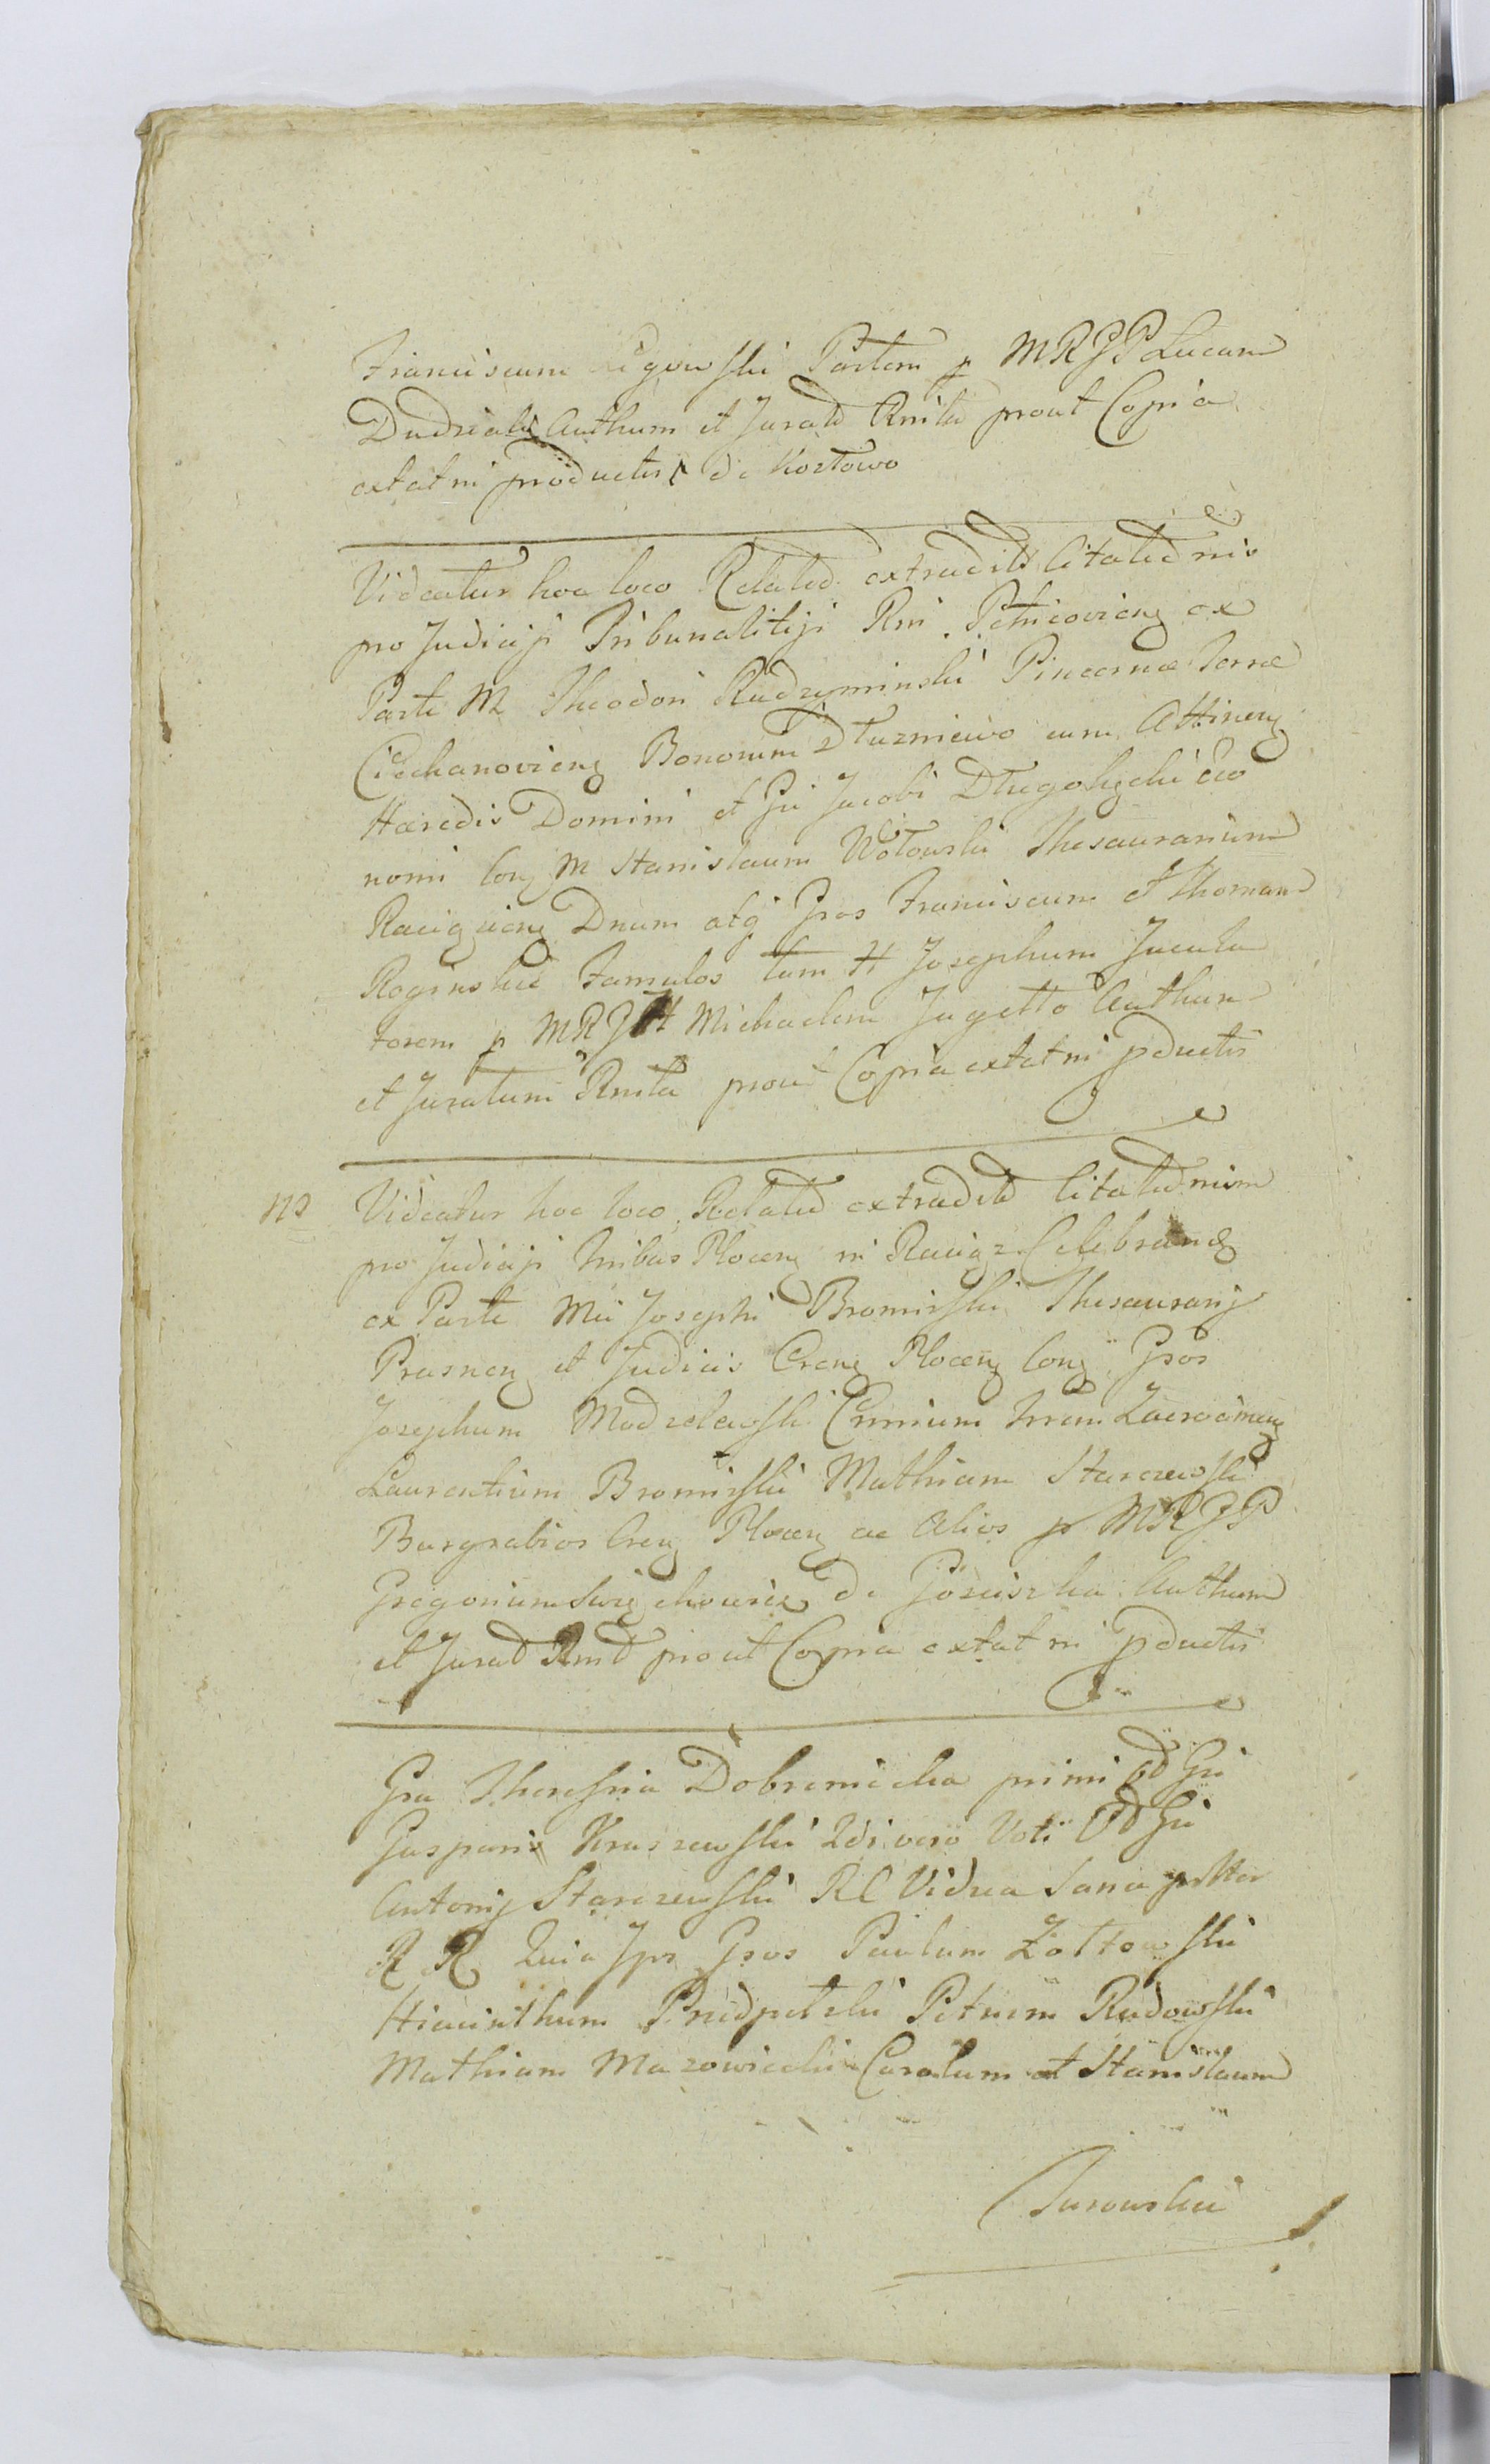 Franciscum Partem p MRJP Lucam
Dudziak Authum et Jurad Rmta prout Copia
extat in productis de Kozłowo
Videatur hoc loco Relatio extradit Citationis
pro Judicji Tribunalitiji Rni Petricovien ex
Parte M Theodori Radzyminski Pincernæ Terræ
Ciechanovien Bonorum Dłuzniewo cum Attinen
Hæredis Domini et Gii Jacobi Długołęcki
nomi Con M Stanislaum Wołowski Thesaurarium
Raciązien Dnum atq Gsos Franciscum et Thomam
Roginskie Famulos tum H Josephum Jacula
torem p MRJH Michaelem Jagełło Authum
et Juratum Rmta prout Copia extat in pductis
No Videatur hoc loco Relatio extradit Citationum
pro Judicji Tribus Plocen in Raciąz Celebran
ex Parte Mci Josephi Bromirski Thesaurarij
Prasnen et Judicis Cren Plocen Con Gsos
Josephum Modzelewski Camium Trrem Zacrocimen
Laurentium Bromirski Mathiam Starczewski
Burgrabios Cren Plocen ac Alios p MRJP
Gregorium Swięchowicz de Gosciszka Authum
et Jurad Rmd prout Copia extat in pductis
Gsa Theresia Dobrznicka primi Gsi
Gasparis Kraszewski 2di vero Voti Gsi
Antonij Starczewski RC Vidua Sana
R R Quia Jps Gsos Paulum Żołtowski
Hiacinthum Przedpełski Petrum Rudowski
Mathiam Mazowiecki Carolum et Stanislaum
Turowskie